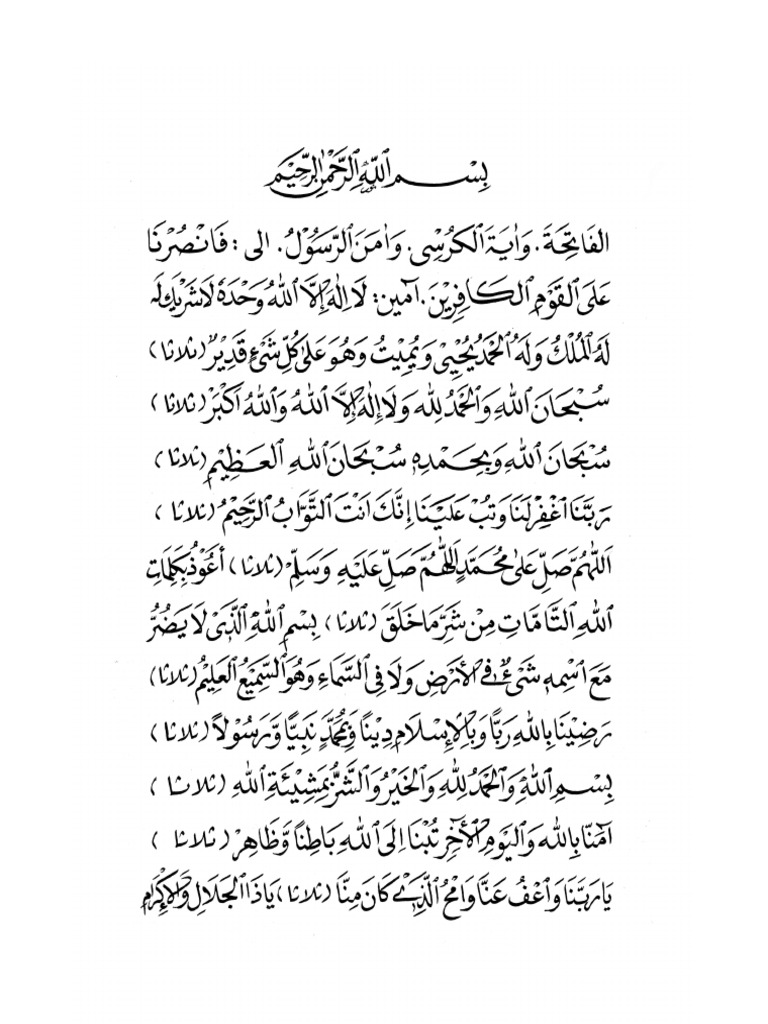 بِسْمِ اللَّهِ الرَّحْمٰنِ الرَّحِيْمِ
الفَاتِحَةَ. وَاٰيَةَ الْكُرْسِى. وَاٰمَنَ الرَّسُوْلُ. الى : فَانْصُرْنَا
عَلَى الْقَوْمِ الْكَافِرِيْنَ. آمين: لَا اِلٰهَ اِلَّا اللهُ وَحْدَهُ لَا شَرِيْكَ لَهُ
لَهُ الْمُلْكُ وَلَهُ الْحَمْدُ يُحْيِىْ وَيُمِيْتُ وَهُوَ عَلٰى كُلِّ شَىْءٍ قَدِيْرٌ (ثلاثا)
سُبْحَانَ اللهِ وَالْحَمْدُ لِلهِ وَلَا إِلٰهَ إِلَّا اللهُ وَاللهُ اَكْبَرْ (ثلاثا)
سُبْحَانَ اللهِ وَبِحَمْدِهِ سُبْحَانَ اللهِ الْعَظِيْمِ (ثلاثا)
رَبَّنَا اغْفِرْ لَنَا وَتُبْ عَلَيْنَا إِنَّكَ اَنْتَ التَّوَّابُ الرَّحِيْمُ (ثلاثا)
اَللّٰهُمَّ صَلِّ عَلٰى مُحَمَّدٍ اَللّٰهُمَّ صَلِّ عَلَيْهِ وَسَلِّمْ (ثلاثا) أَعُوْذُ بِكَلِمَاتِ
اللهِ التَّامَّاتِ مِنْ شَرِّ مَا خَلَقَ (ثلاثا) بِسْمِ اللهِ الَّذِىْ لَا يَضُرُّ
مَعَ اسْمِهِ شَىْءٌ فِى الْأَرْضِ وَلَا فِى السَّمَاءِ وَهُوَ السَّمِيْعُ الْعَلِيْمُ (ثلاثا)
رَضِيْنَا بِاللهِ رَبًّا وَبِالْإِسْلَامِ دِيْنًا وَبِمُحَمَّدٍ نَبِيًّا وَّرَسُوْلًا (ثلاثا)
بِسْمِ اللهِ وَالْحَمْدُ لِلهِ وَالْخَيْرُ وَالشَّرُّ بِمَشِيْئَةِ اللهِ (ثلاثا)
اٰمَنَّا بِاللهِ وَالْيَوْمِ الْآخِرِ تُبْنَا اِلَى اللهِ بَاطِنًا وَّظَاهِرْ (ثلاثا)
يَا رَبَّنَا وَاعْفُ عَنَّا وَامْحُ الَّذِىْ كَانَ مِنَّا (ثلاثا) يَا ذَا الْجَلَالِ وَالْإِكْرَامِ